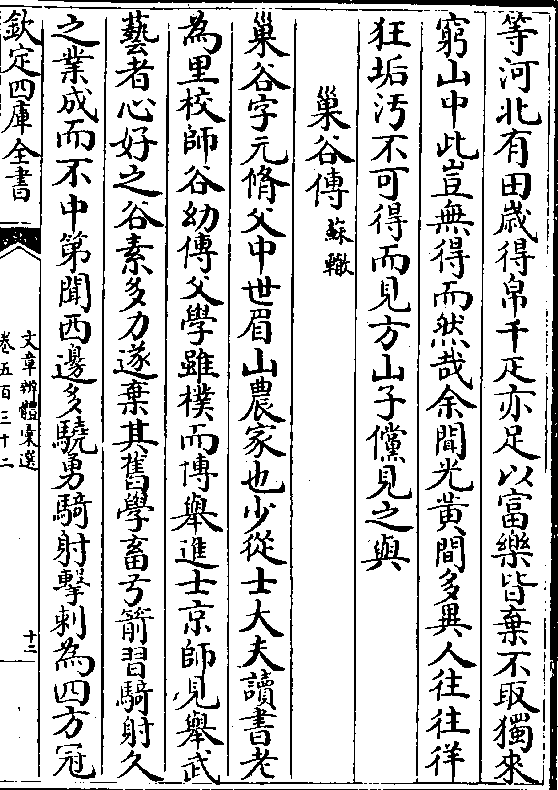 等河北有田歳得帛千疋亦足以富樂皆棄不取獨來
窮山中此豈無得而然哉余聞光黄間多異人往往徉
狂垢汚不可得而見方山子儻見之與
巢谷傳蘇轍
巢谷字元脩父中世眉山農家也少從士大夫讀書老
為里校師谷幼傳父學雖樸而博舉進士京師見舉武
藝者心好之谷素多力遂棄其舊學畜弓箭習騎射久
之業成而不中第聞西邊多驍勇騎射擊刺為四方冠
欽定四庫全書
文章辨體彙選
卷五百三十二
十二